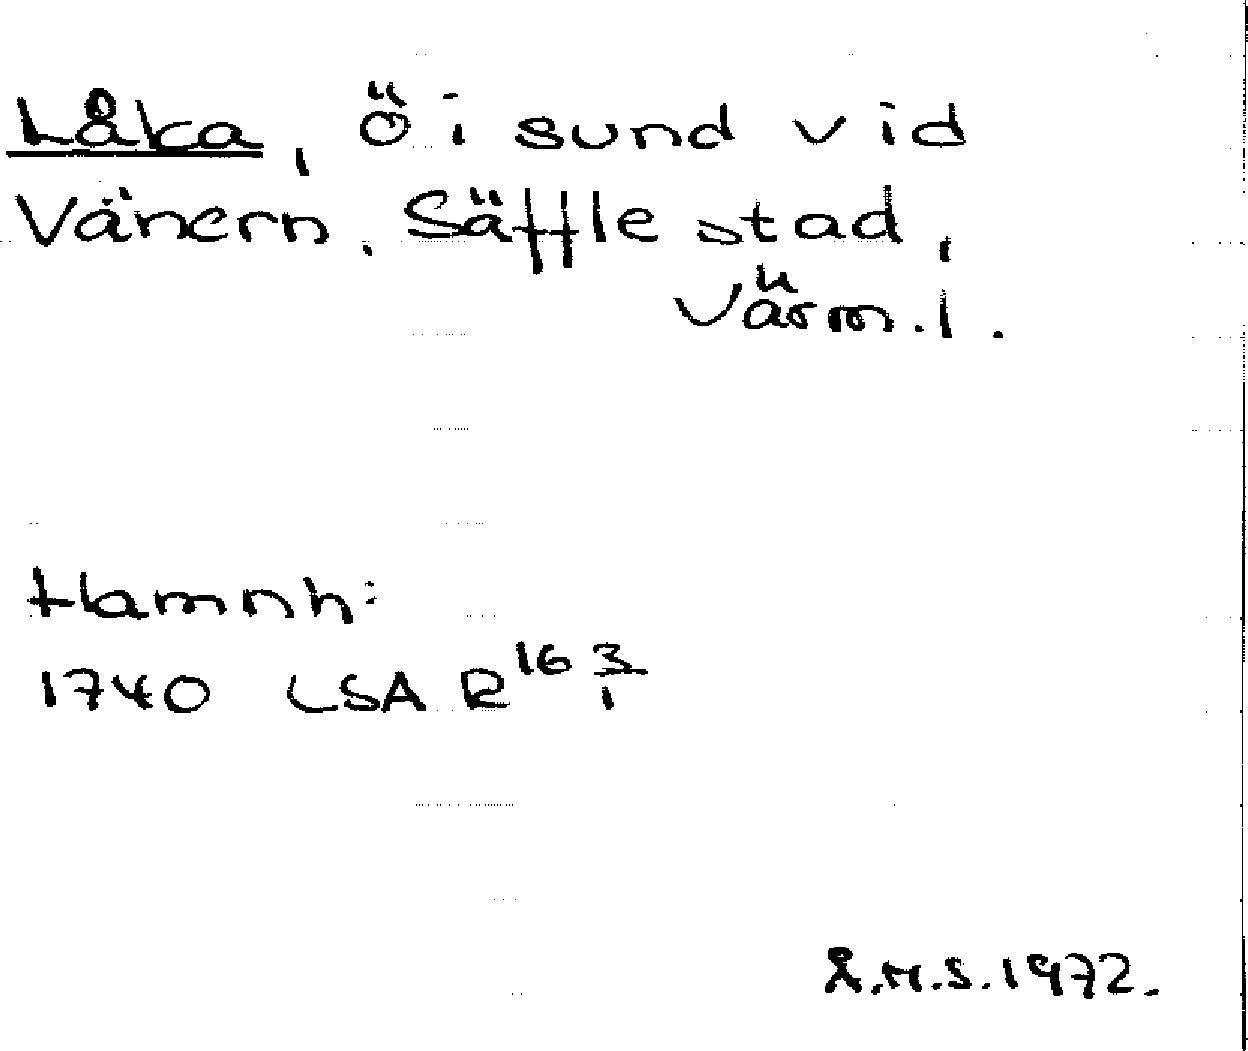 Låka, ö i sund vid
Vänern. Säffle stad,
Värml.
Hamnh:
1740 LSA R16 3/1
Å.H.S. 1972.